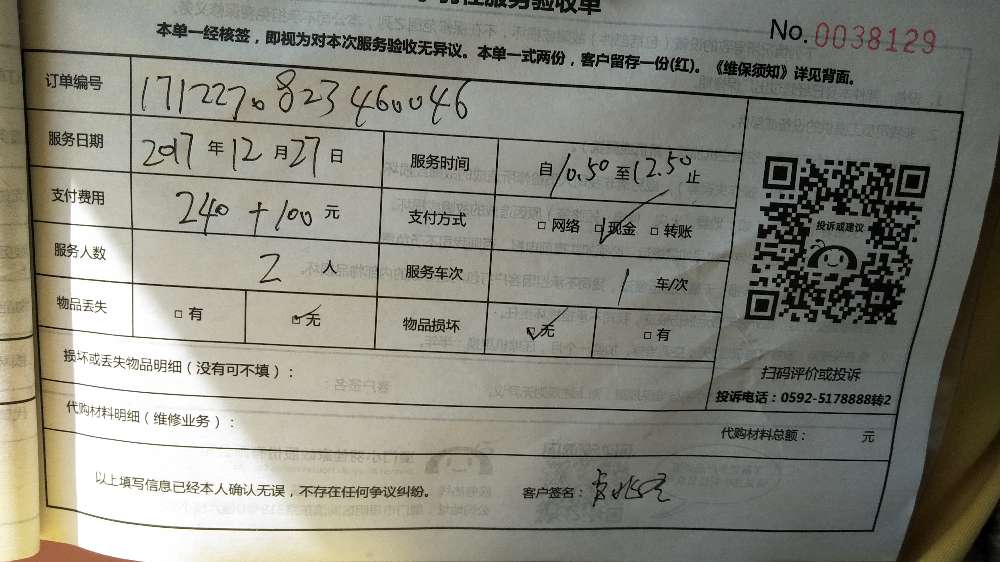 任服务验收单
No.0038129
本单一经核签，即视为对本次服务验收无异议。本单一式两份，客户留存一份(红)。《维保须知》详见背面。
订单编号 171227082346​0046
服务日期 2017 年 12 月 27 日 服务时间 自 10.50 至 12.50 止
支付费用 240 + 100 元 支付方式 □ 网络 □ 现金 □ 转账
投诉或建议
服务人数 2 人 服务车次 1 车/次
物品丢失 □ 有 □ 无 物品损坏 □ 无 □ 有
损坏或丢失物品明细（没有可不填）：
扫码评价或投诉
投诉电话：0592-5178888转2
代购材料明细（维修业务）： 代购材料总额： 元
以上填写信息已经本人确认无误，不存在任何争议纠纷。 客户签名：